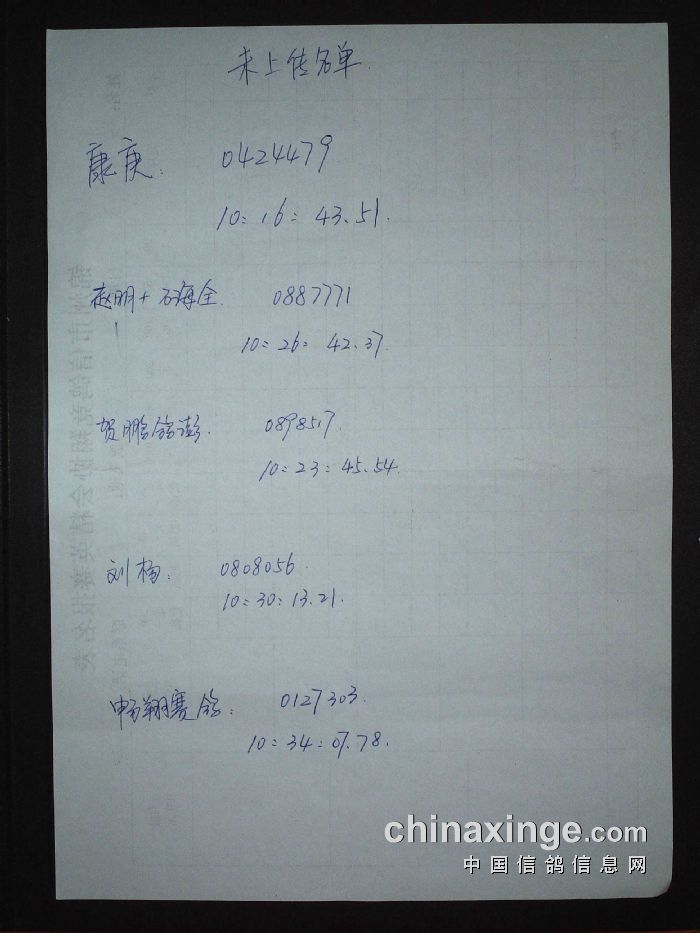 未上传名单.
康庚: 0424479
10:16:43.51.
赵明+石海全. 0887771
10:26:42.37.
贺鹏鸽澎. 0898517.
10:23:45.54.
刘杨: 0808056.
10:30:13.21.
畅翔赛鸽: 0127303.
10:34:07.78.
chinaxinge.com
中国信鸽信息网